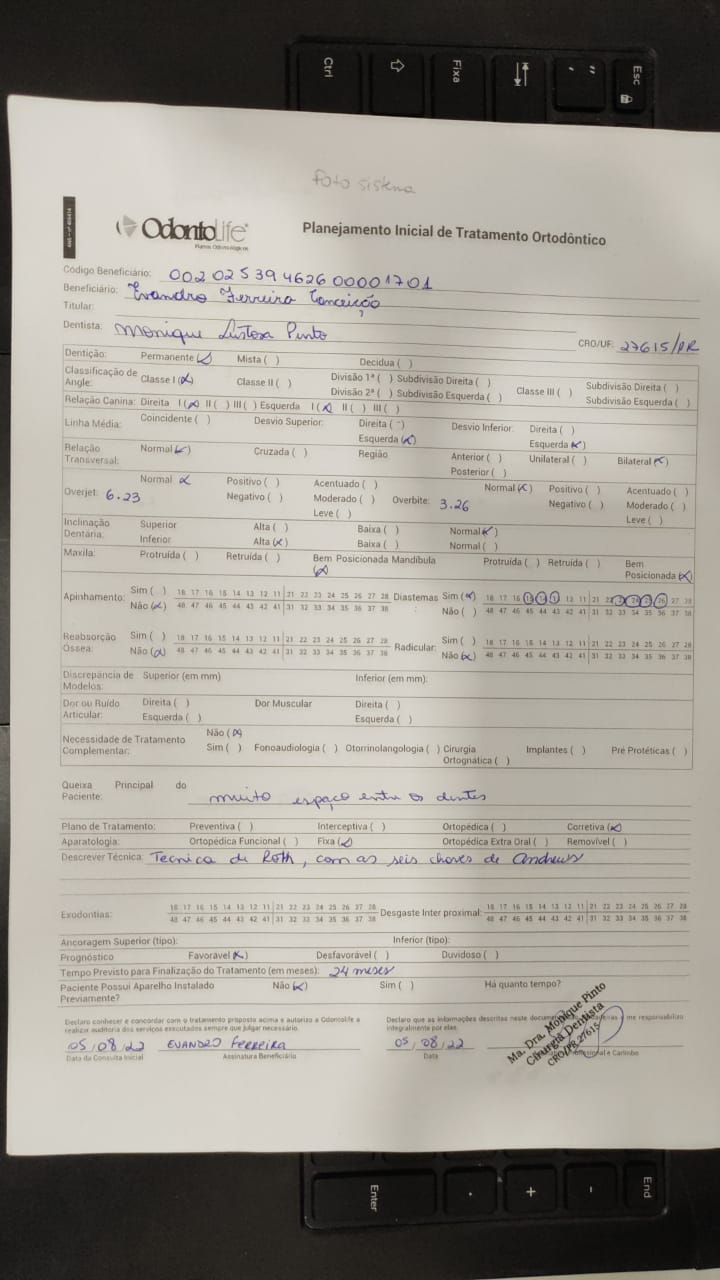 Esc
Fixa
Ctrl
foto sistema
OdontoLife
Planos Odontológicos
Planejamento Inicial de Tratamento Ortodôntico
Código Beneficiário: 002 0253946260000 1701
Beneficiário: Evandro Ferreira Conceição
Titular:
Dentista: Monique Lustosa Pinto CRO/UF: 27615/PR
Dentição: Permanente (x) Mista ( ) Decídua ( )
Classificação de Angle: Classe I (x) Classe II ( ) Divisão 1ª ( ) Subdivisão Direita ( ) Classe III ( ) Subdivisão Direita ( )
Divisão 2ª ( ) Subdivisão Esquerda ( ) Subdivisão Esquerda ( )
Relação Canina: Direita I (x) II ( ) III ( ) Esquerda I (x) II ( ) III ( )
Linha Média: Coincidente ( ) Desvio Superior: Direita ( ) Desvio Inferior: Direita ( )
Esquerda (x) Esquerda (x)
Relação Transversal: Normal (x) Cruzada ( ) Região Anterior ( ) Unilateral ( ) Bilateral (x)
Posterior ( )
Normal x Positivo ( ) Acentuado ( ) Normal (x) Positivo ( ) Acentuado ( )
Overjet: 6.23 Negativo ( ) Moderado ( ) Overbite: 3.26 Negativo ( ) Moderado ( )
Leve ( ) Leve ( )
Inclinação Dentária: Superior Alta ( ) Baixa ( ) Normal (x)
Inferior Alta (x) Baixa ( ) Normal ( )
Maxila: Protruída ( ) Retruída ( ) Bem Posicionada (x) Mandíbula Protruída ( ) Retruída ( ) Bem Posicionada (x)
Apinhamento: Sim ( ) 18 17 16 15 14 13 12 11 21 22 23 24 25 26 27 28 Diastemas Sim (x) 18 17 16 15 14 13 12 11 21 22 23 24 25 26 27 28
Não (x) 48 47 46 45 44 43 42 41 31 32 33 34 35 36 37 38 Não ( ) 48 47 46 45 44 43 42 41 31 32 33 34 35 36 37 38
Reabsorção Óssea: Sim ( ) 18 17 16 15 14 13 12 11 21 22 23 24 25 26 27 28 Radicular: Sim ( ) 18 17 16 15 14 13 12 11 21 22 23 24 25 26 27 28
Não (x) 48 47 46 45 44 43 42 41 31 32 33 34 35 36 37 38 Não (x) 48 47 46 45 44 43 42 41 31 32 33 34 35 36 37 38
Discrepância de Modelos: Superior (em mm): Inferior (em mm):
Dor ou Ruído Articular: Direita ( ) Dor Muscular Direita ( )
Esquerda ( ) Esquerda ( )
Necessidade de Tratamento Complementar: Não (x)
Sim ( ) Fonoaudiologia ( ) Otorrinolangologia ( ) Cirurgia Ortognática ( ) Implantes ( ) Pré Protéticas ( )
Queixa Principal do Paciente: muito espaço entre os dentes
Plano de Tratamento: Preventiva ( ) Interceptiva ( ) Ortopédica ( ) Corretiva (x)
Aparatologia: Ortopédica Funcional ( ) Fixa (x) Ortopédica Extra Oral ( ) Removível ( )
Descrever Técnica: Tecnica de Roth, com as seis chaves de Andrews
Exodontias: 18 17 16 15 14 13 12 11 21 22 23 24 25 26 27 28 Desgaste Inter proximal: 18 17 16 15 14 13 12 11 21 22 23 24 25 26 27 28
48 47 46 45 44 43 42 41 31 32 33 34 35 36 37 38 48 47 46 45 44 43 42 41 31 32 33 34 35 36 37 38
Ancoragem Superior (tipo): Inferior (tipo):
Prognóstico Favorável (x) Desfavorável ( ) Duvidoso ( )
Tempo Previsto para Finalização do Tratamento (em meses): 24 meses
Paciente Possui Aparelho Instalado Previamente? Não (x) Sim ( ) Há quanto tempo?
Declaro conhecer e concordar com o tratamento proposto acima e autorizo a Odontolife a
realizar auditoria dos serviços executados sempre que julgar necessário.
Declaro que as informações descritas neste documento e me responsabilizo
integralmente por elas.
05/08/22 EVANDRO FERREIRA 05/08/22
Data da Consulta Inicial Assinatura Beneficiário Data Profissional e Carimbo
Ma. Dra. Monique Pinto
Cirurgiã Dentista
CRO/PR 27615
Enter
.
+
-
End